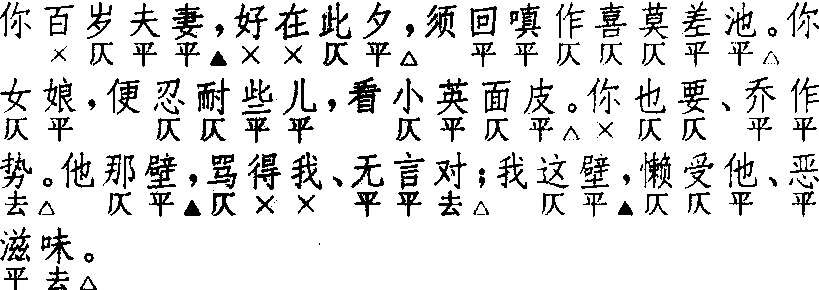 你百岁夫妻，好在此夕，须回嗔作喜莫差池。你
×仄平平▲××仄平△平平仄仄仄平平△
女娘，便忍耐些儿，看小英面皮。你也要、乔作
仄平仄仄平平仄平仄平△×仄仄平平
势。他那壁，骂得我、无言对；我这壁，懒受他、恶
去△仄平▲仄××平平去△仄平▲仄仄平平
滋味。
平去△